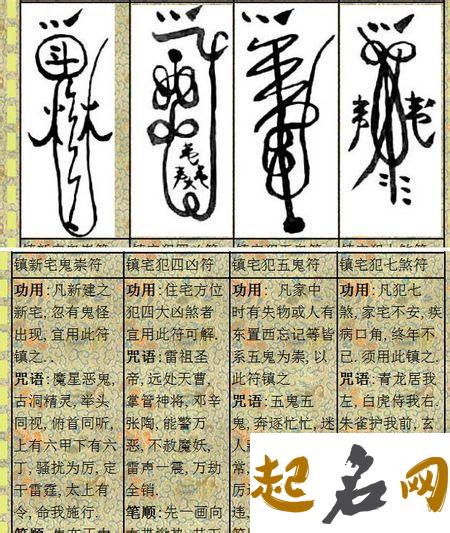 斗
镇新宅鬼祟符
功用:凡新建之
新宅,忽有鬼怪
出现,宜用此符
镇之..
咒语:魔星恶鬼,
古洞精灵,举头
同视,俯首同听,
上有六甲下有六
丁,骚扰为厉,定
干雷霆,太上有
令,命我施行.
笔顺:
镇宅犯四凶符
功用:住宅方位
犯四大凶煞者
宜用此符可解.
咒语:雷祖圣
帝,远处天曹,
掌管神将,邓辛
张陶,能警万
恶,不赦魔妖,
雷声一震,万劫
全销.
笔顺:先一画向
镇宅犯五鬼符
功用: 凡家中
时有失物或人有
东置西忘记等皆
系五鬼为祟,以
此符镇之
咒语:五鬼五
鬼,奔逐忙忙,迷
人
常,
厉
违,
镇宅犯七煞符
功用:凡犯七
煞,家宅不安,疾
病口角,终年不
已.须用此镇之.
咒语:青龙居我
左,白虎侍我右.
朱雀护我前,玄
起名网